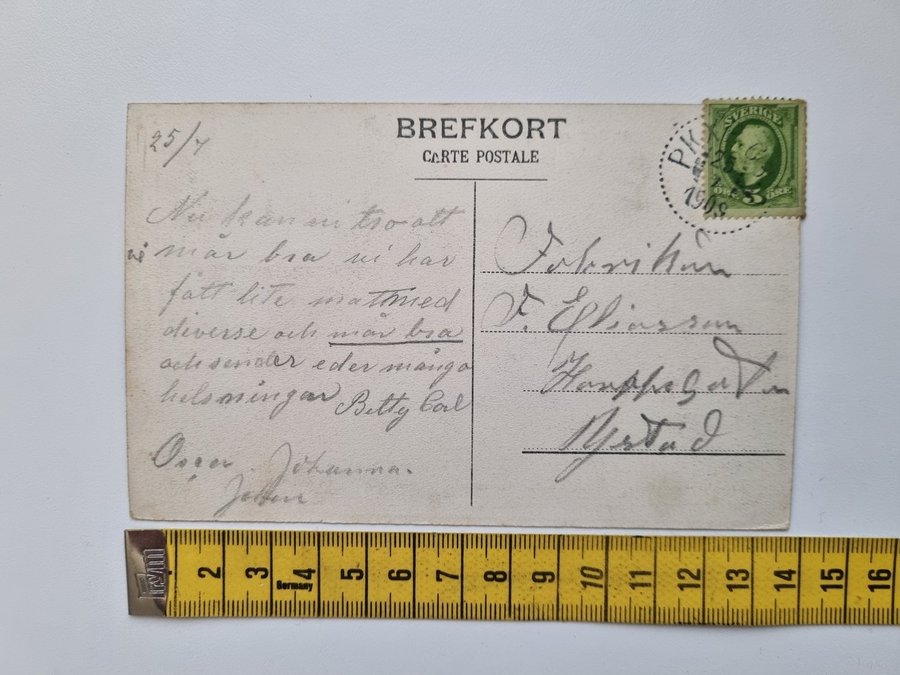 BREFKORT
CARTE POSTALE
25/7
Nu kan ni tro att
vi mår bra vi har
fått lite mat med
diverse och mår bra
och sender eder många
helsningar Betty Carl
Oscar Johanna.
SVERIGE
5
ÖRE
PKX
1908
Fabrikör
F. Eliasson
Ystad
2 3 4 5 6 7 8 9 10 11 12 13 14 15 16
Germany